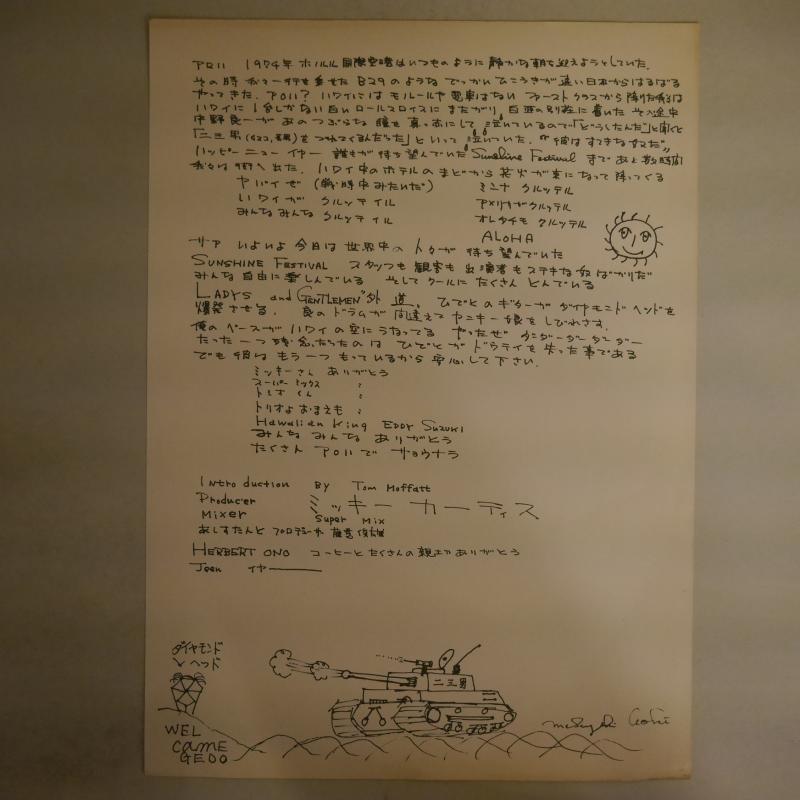 アロハ 1974年 ホノルル国際空港はいつものように静かな朝を迎えようとしていた。
その時 一行を乗せた B29のような でっかい ひこうきが 遠い日本からはるばる
やってきた。アロハ? ハワイには モノレールや電車はない ファーストクラスから降りた
ハワイに1台しかない白いロールスロイスにまたがり 別荘に着いた その途中
中野良一が あのつぶらな 瞳を 真っ赤にして 泣いているので「どうしたんだ」と聞くと
「二三男 をつれてくるんだった」といって 泣いていた。
ハッピーニューイヤー 誰もが待ち望んでいた Sunshine Festival まで あと数時間
街へ出た。ハワイ中のホテルのまどから 花火が束になって降ってくる
ヤバイぜ (戦時中みたいだ)
ミンナ クルッテル
ハワイガ クルッテイル
アメリカガクルッテル
みんなみんな クルッテイル
オレタチモ クルッテル
ALOHA
サァ いよいよ 今日は 世界中の 待ち望んでいた
SUNSHINE FESTIVAL スタッフも 観客も 出演者も ステキな奴ばかりだ
みんな 自由に 楽しんでいる そして クールに たくさん とんでいる
LADYS and GENTLEMEN "外道" ひでとのギターが ダイヤモンドヘッドを
爆発させる。良のドラムが 間違えて ヤンキー娘をしびれさす。
俺の ベースが ハワイの空に うなってる やったぜ ダンダーダーダンダー
たった一つ残念だったのは ひでとが ドウテイを失った事である
でも 彼は もう一つ もっているから 安心して下さい。
ミッキーさん ありがとう
スーパーミックス 〃
トミオくん 〃
トリオよおまえも 〃
Hawaiian King EDDY SUZUKI
みんな みんな ありがとう
たくさん アロハで サヨウナラ
Introduction BY Tom Moffatt
Producer ミッキー カーティス
Mixer Super Mix
あしすたんと プロデューサー
HERBERT ONO コーヒーと たくさんの親切ありがとう
Joen イヤー
ダイヤモンド
ヘッド
二三男
WEL
CAME
GEDO